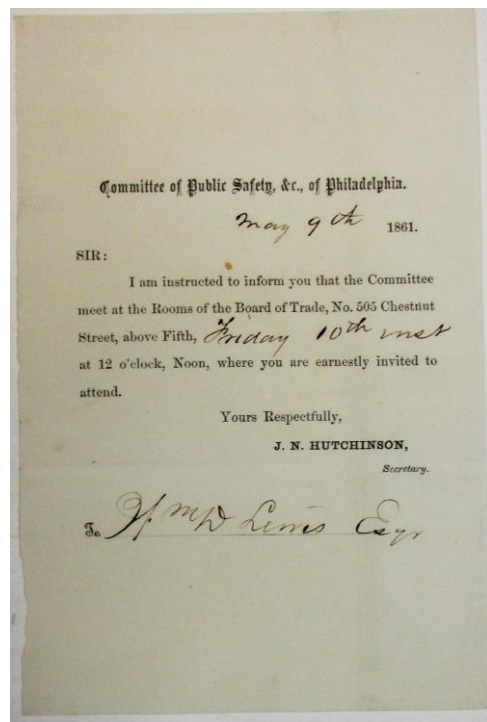 Committee of Public Safety, &c., of Philadelphia.
May 9th 1861.
SIR:
I am instructed to inform you that the Committee
meet at the Rooms of the Board of Trade, No. 505 Chestnut
Street, above Fifth, Friday 10th inst
at 12 o'clock, Noon, where you are earnestly invited to
attend.
Yours Respectfully,
J. N. HUTCHINSON,
Secretary.
To Wm D Lewis Esqr